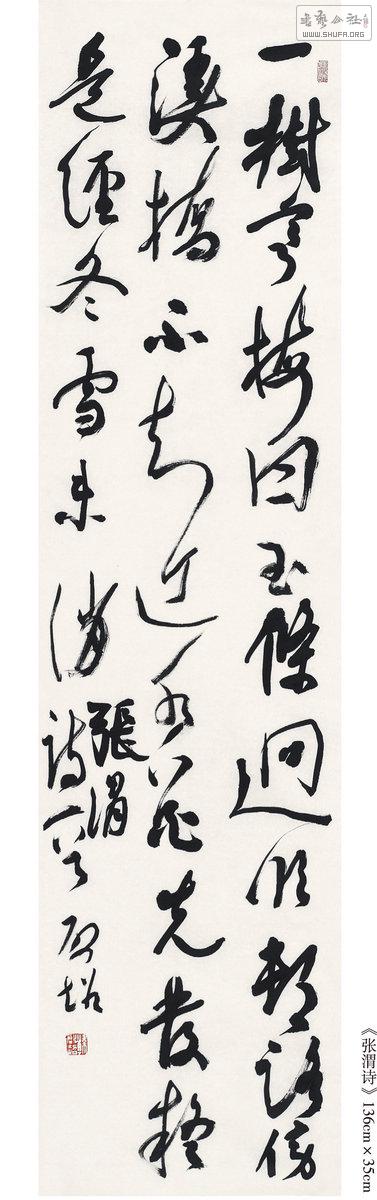 書藝公社
WWW.SHUFA.ORG
一樹寒梅白玉條迥臨邨路傍
溪橋不知近水花先發疑
是經冬雪未消
張渭
詩一首
《张渭诗》136cm×35cm